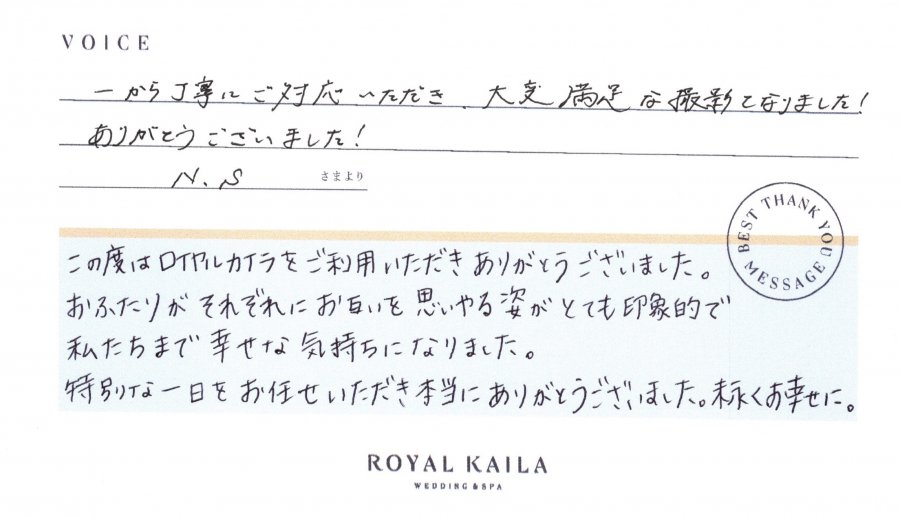 VOICE
一から丁寧にご対応いただき、大変満足な撮影となりました!
ありがとうございました!
N.S さまより
BEST THANK YOU MESSAGE
この度はロイヤルカイラをご利用いただきありがとうございました。
おふたりがそれぞれにお互いを思いやる姿がとても印象的で
私たちまで幸せな気持ちになりました。
特別な一日をお任せいただき本当にありがとうございました。末永くお幸せに。
ROYAL KAILA
WEDDING & SPA